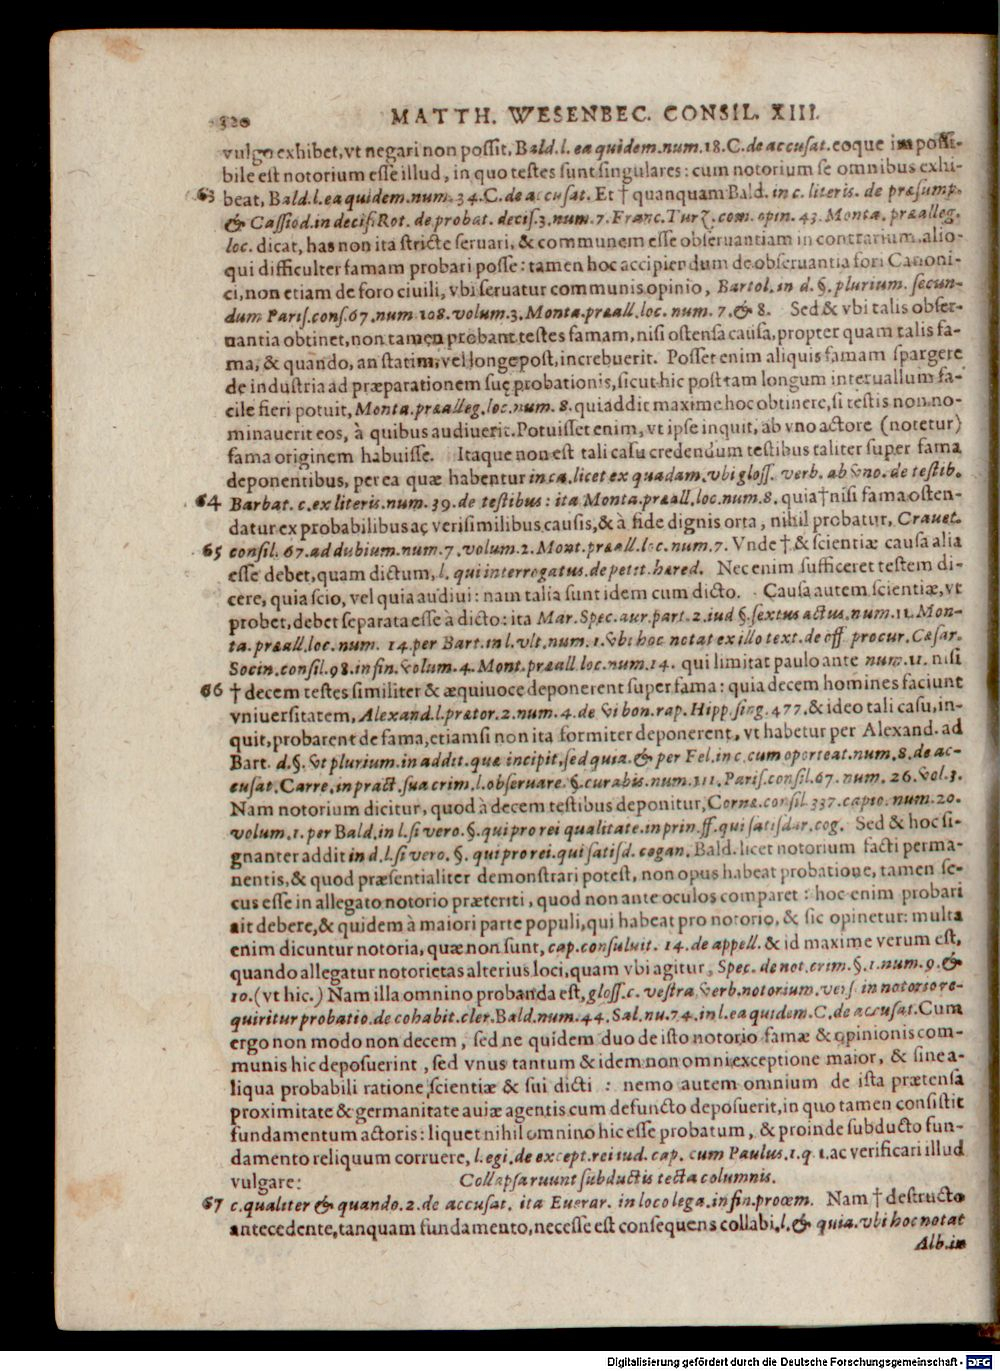 320 MATTH. WESENBEC. CONSIL. XIII.
vulgo exhibet, vt negari non possit, Bald. l. ea quidem. num. 18. C. de accusat. eoque impossi-
bile est notorium esse illud, in quo testes sunt singulares: cum notorium se omnibus exhi-
63 beat, Bald. l. ea quidem. num. 34. C. de accusat. Et † quanquam Bald. in c. literis. de præsump.
& Cassiod. in decis. Rot. de probat. decis. 3. num. 7. Franc. Turz. com. opin. 43. Monta. præalleg.
loc. dicat, has non ita stricte seruari, & communem esse obseruantiam in contrarium, alio-
qui difficulter famam probari posse: tamen hoc accipiendum de obseruantia fori Canoni-
ci, non etiam de foro ciuili, vbi seruatur communis opinio, Bartol. in d. §. plurium. secun-
dum Paris. cons. 67. num. 108. volum. 3. Monta. præall. loc. num. 7. & 8. Sed & vbi talis obser-
uantia obtinet, non tamen probant testes famam, nisi ostensa causa, propter quam talis fa-
ma, & quando, an statim, vel longe post, increbuerit. Posset enim aliquis famam spargere
de industria ad præparationem suę probationis, sicut hic post tam longum interuallum fa-
cile fieri potuit, Monta. præalleg. loc. num. 8. qui addit maxime hoc obtinere, si testis non no-
minauerit eos, à quibus audiuerit. Potuisset enim, vt ipse inquit, ab vno actore (notetur)
fama originem habuisse. Itaque non est tali casu credendum testibus taliter super fama
deponentibus, per ea quæ habentur in ca. licet ex quadam. vbi gloss. verb. ab vno. de testib.
64 Barbat. c. ex literis. num. 39. de testibus: ita Monta. præall. loc. num. 8. quia † nisi fama osten-
datur ex probabilibus aç verisimilibus causis, & à fide dignis orta, nihil probatur, Crauet.
65 consil. 67. ad dubium. num. 7. volum. 2. Mont. præall. loc. num. 7. Vnde † & scientiæ causa alia
esse debet, quam dictum, l. qui interrogatus. de petit. hæred. Nec enim sufficeret testem di-
cere, quia scio, vel quia audiui: nam talia sunt idem cum dicto. Causa autem scientiæ, vt
probet, debet separata esse à dicto: ita Mar. Spec. aur. part. 2. iud §. sextus actus. num. 11. Mon-
ta. præall. loc. num. 14. per Bart. in l. vlt. num. 1. vbi hoc notat ex illo text. de off procur. Cæsar.
Socin. consil. 98. in fin. volum. 4. Mont. præall. loc. num. 14. qui limitat paulo ante num. 11. nisi
66 † decem testes similiter & æquiuoce deponerent super fama: quia decem homines faciunt
vniuersitatem, Alexand. l. prætor. 2. num. 4. de vi bon. rap. Hipp. sing. 477. & ideo tali casu, in-
quit, probarent de fama, etiamsi non ita formiter deponerent, vt habetur per Alexand. ad
Bart. d. §. vt plurium. in addit. quæ incipit, sed quia. & per Fel. in c. cum oporteat. num. 8. de ac-
cusat. Carre. in pract. sua crim. l. obseruare. §. curabis. num. 111. Paris. consil. 67. num. 26. vol. 3.
Nam notorium dicitur, quod à decem testibus deponitur, Corne. consil. 337. capto. num. 20.
volum. 1. per Bald. in l. si vero. §. qui pro rei qualitate. in prin. ff. qui satisdar. cog. Sed & hoc si-
gnanter addit in d. l. si vero. §. qui pro rei. qui satisd. cogan. Bald. licet notorium facti perma-
nentis, & quod præsentialiter demonstrari potest, non opus habeat probatione, tamen se-
cus esse in allegato notorio præteriti, quod non ante oculos comparet: hoc enim probari
ait debere, & quidem à maiori parte populi, qui habeat pro notorio, & sic opinetur: multa
enim dicuntur notoria, quæ non sunt, cap. consuluit. 14. de appell. & id maxime verum est,
quando allegatur notorietas alterius loci, quam vbi agitur, Spec. de not. crim. §. 1. num. 9. &
10. (vt hic.) Nam illa omnino probanda est, gloss. c. vestra. verb. notorium. vers. in notorio re-
quiritur probatio. de cohabit. cler. Bald. num. 44. Sal. nu. 74. in l. ea quidem. C. de accusat. Cum
ergo non modo non decem, sed ne quidem duo de isto notorio famæ & opinionis com-
munis hic deposuerint, sed vnus tantum & idem non omni exceptione maior, & sine a-
liqua probabili ratione scientiæ & sui dicti: nemo autem omnium de ista prætensa
proximitate & germanitate auiæ agentis cum defuncto deposuerit, in quo tamen consistit
fundamentum actoris: liquet nihil omnino hic esse probatum, & proinde subducto fun-
damento reliquum corruere, l. egi. de except. rei iud. cap. cum Paulus. 1. q. 1. ac verificari illud
vulgare: Collapsa ruunt subductis tecta columnis.
67 c. qualiter & quando. 2. de accusat. ita Euerar. in loco lega. in fin. proœm. Nam † destructo
antecedente, tanquam fundamento, necesse est consequens collabi, l. & quia. vbi hoc notat
Alb. in
Digitalisierung gefördert durch die Deutsche Forschungsgemeinschaft - DFG